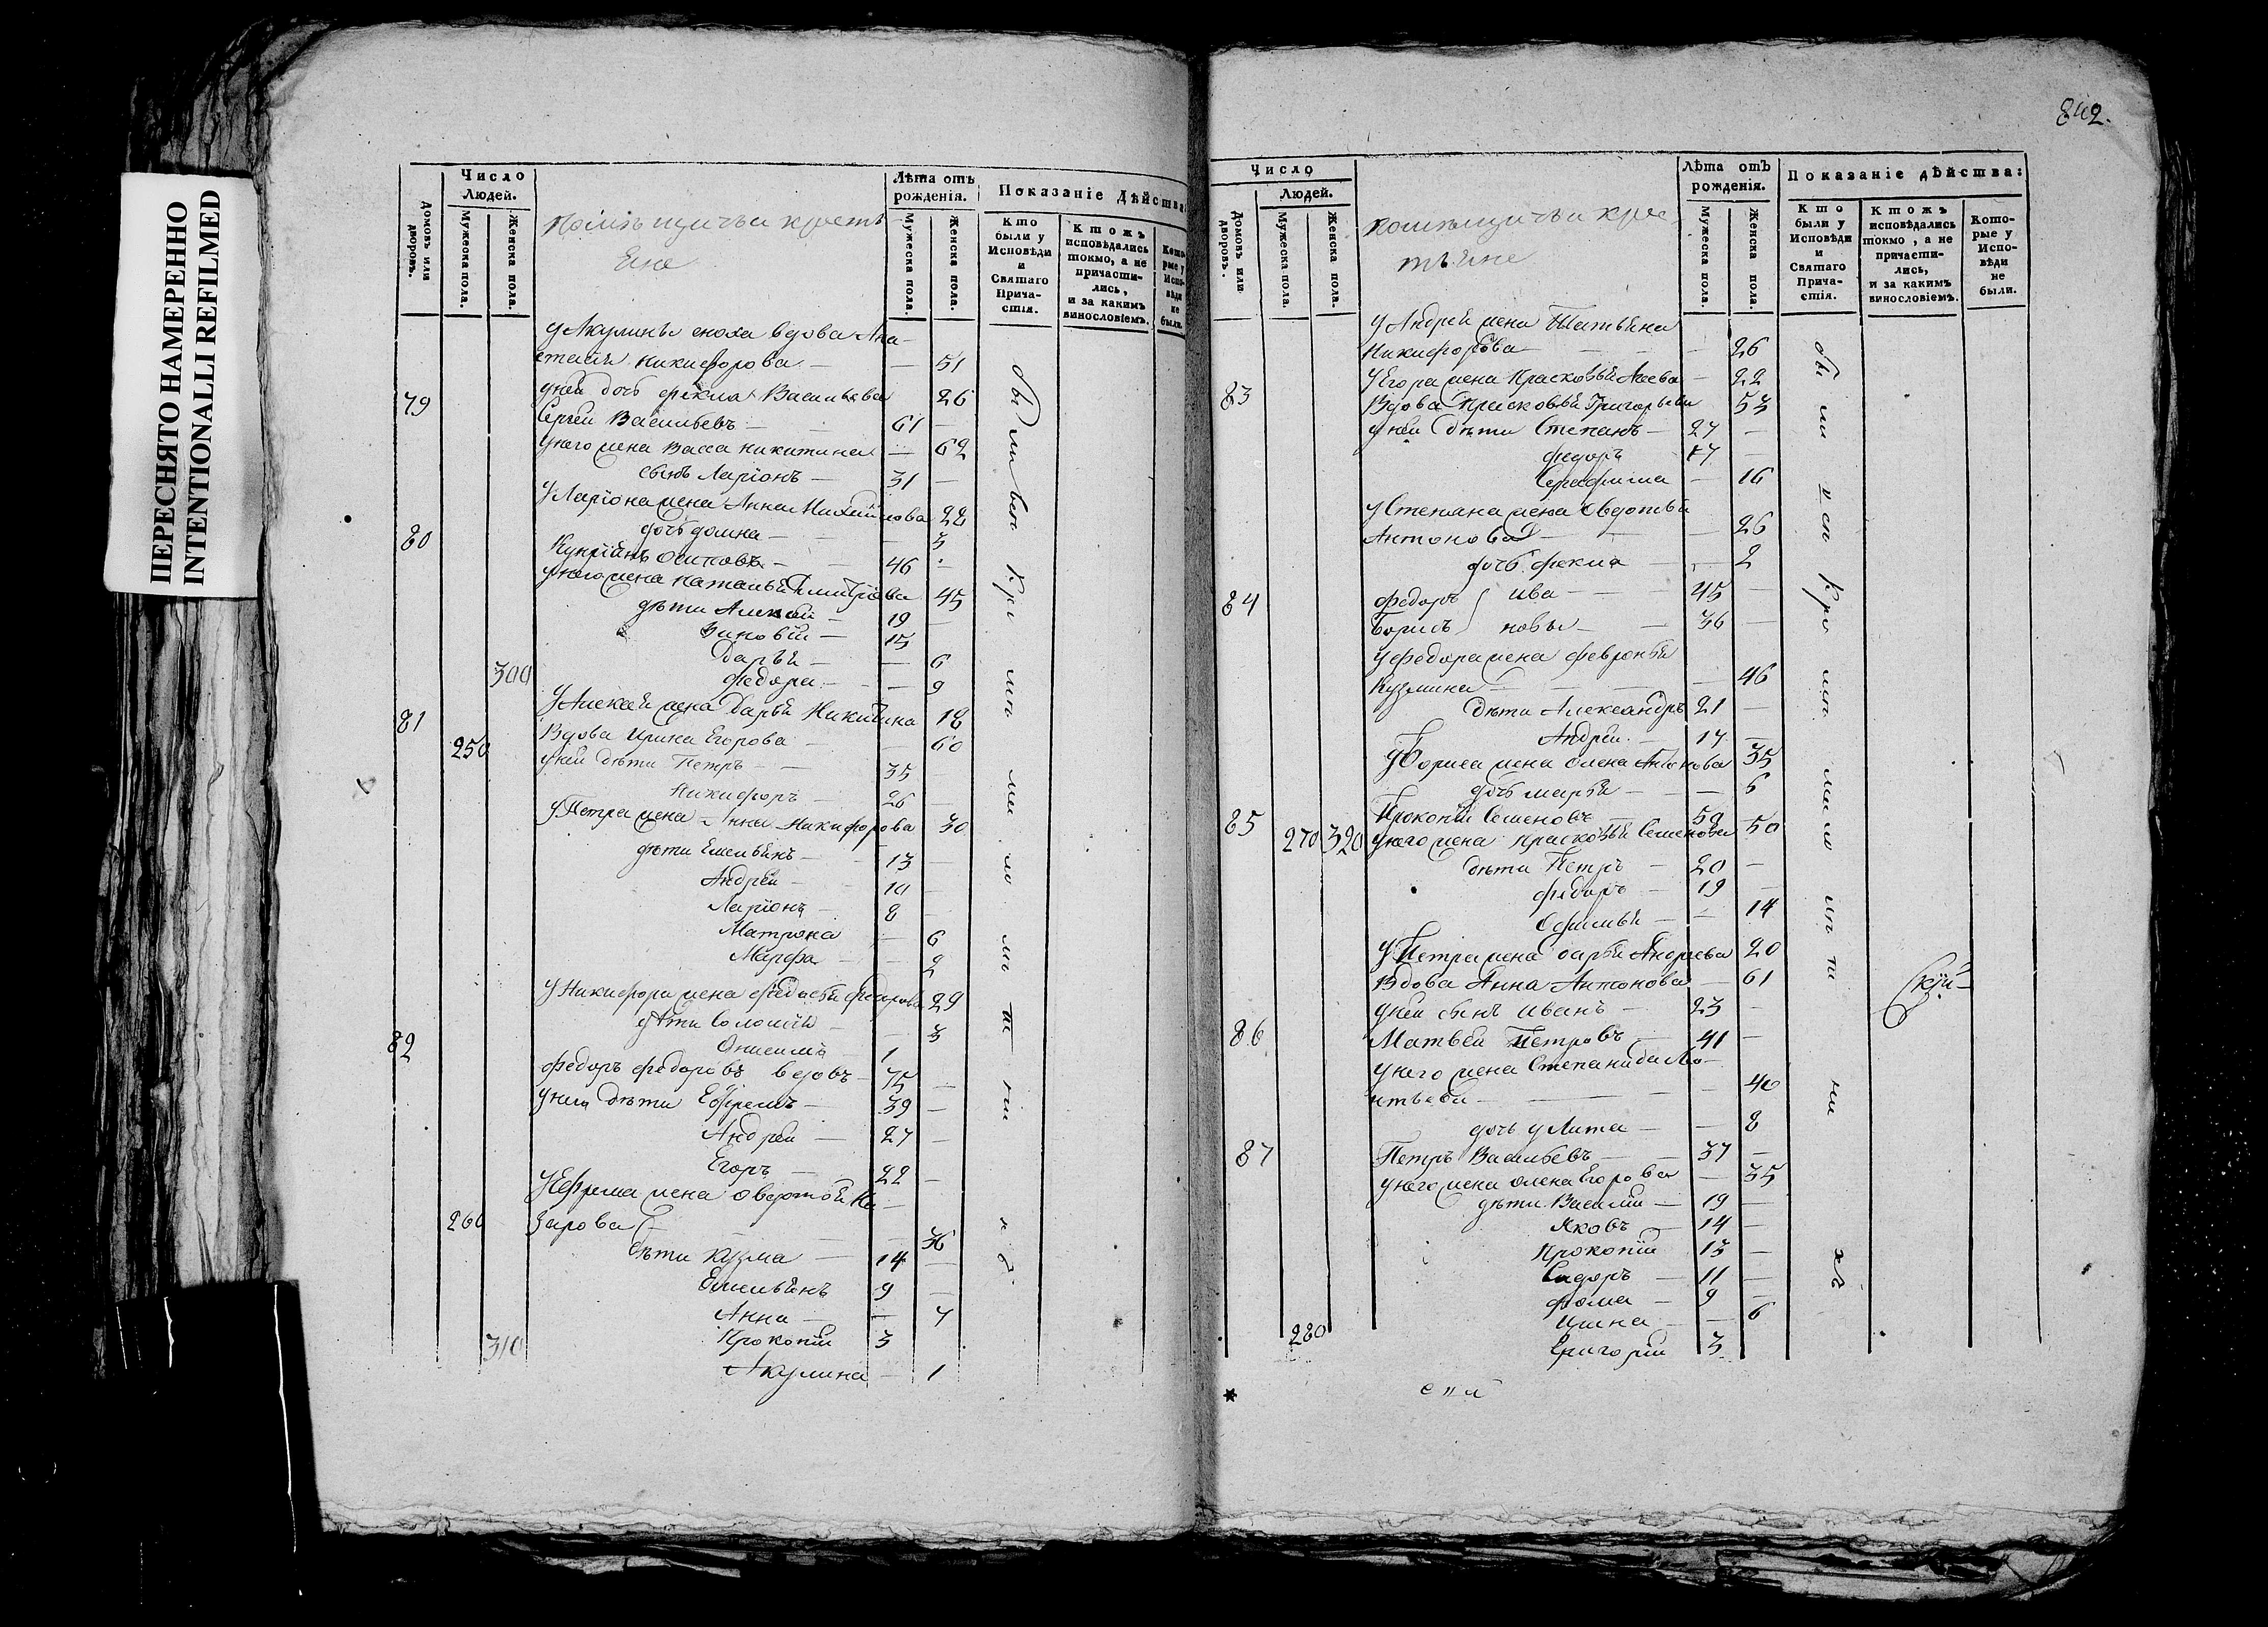 ПЕРЕСНЯТО НАМЕРЕННО
INTENTIONALLI REFILMED
Число
Людей.
Домовъ или дворовъ.
Мужеска пола.
Женска пола.
помѣщичьи крестья
не
Лѣта отъ рожденія.
Мужеска пола.
Женска пола.
Показаніе Дѣйства:
Кто были у Исповѣди и Святаго Прича-стія.
Ктожъ исповѣдались токмо, а не причасти-лись, и за какимъ винословіемъ.
Кото-рые у Испо-вѣди не были.
у Акулины сноха вдова Ана-
стасія Никифорова — — 51
у ней дочь Фекла Васильева 26
79 Сергей Васильевъ — 61 —
у него жена Васса Никитина — 62
сынъ Ларіонъ — 31 —
у Ларіона жена Анна Михайлова 22
дочь Домна — — 3
80 Купріянъ Осиповъ — 46 —
у него жена Наталья Дмитріева 45
дѣти Алексѣй — 19 —
Зиновій — 15
Дарья — — 6
300 Федора — — 9
у Алексѣя жена Дарья Никитина 18
81 Вдова Ирина Егорова — 60
250 у ней дѣти Петръ — 35
Никифоръ — 26 —
у Петра жена Анна Никифорова 30
дѣти Емельянъ — 13 —
Андрей — 10 —
Ларіонъ — 8 —
Матрона — 6
Марфа — — 2
у Никифора жена Федосья Федорова 29
дѣти Соломия — 3
Онисимъ — 1
82 Федоръ Федоровъ вдовъ — 75 —
у него дѣти Ефремъ — 39 —
Андрей — 27 —
Егоръ — 22 —
у Ефрема жена Овдотья На-
260 зарова — — 36
дѣти Кузма — 14 —
Емельянъ 9 —
Анна — — 7
Прокопій 3
310
Акулина — 1
842.
Число
Людей.
Домовъ или дворовъ.
Мужеска пола.
Женска пола.
помѣщичьи крес
тьяне
Лѣта отъ рожденія.
Мужеска пола.
Женска пола.
Показаніе дѣйства:
Кто были у Исповѣди и Святаго Прича-стія.
Ктожъ исповѣдались токмо, а не причасти-лись, и за какимъ винословіемъ.
Кото-рые у Испо-вѣди не были.
у Андрея жена Татьяна
Никифорова — — 26
у Егора жена Прасковья — 22
83 Вдова Прасковья Григорьева 53
у ней дѣти Степанъ — 27 —
Федоръ 17 —
— 16
у Степана жена Овдотья
Антонова — — 26
дочь Фекла — — 2
84 Федоръ Ива — 45 —
Борисъ новы — 36 —
у Федора жена Февронья
Кузмина — — 46
дѣти Александръ 21 —
Андрей — 17 —
у Бориса жена Олена Антонова 35
дочь Марья — — 6
85 Прокопій Семеновъ — 50
270 320 у него жена Прасковья Семенова 50
дѣти Петръ — 20 —
Федоръ — 19 —
Офимья — — 14
у Петра жена Дарья Андреева 20
Вдова Анна Антонова — 61
у ней сынъ Иванъ — 23 —
86 Матвей Петровъ — 41 —
у него жена Степанида Ло-
нтьева — — 40
дочь Улита — — 8
87 Петръ Васильевъ — 37 —
у него жена Олена Егорова — 35
дѣти Василій — 19 —
Яковъ — 14 —
Прокопій 13 —
Сидоръ — 11 —
Фома — 9 —
Ирина — — 6
280
Григорій 3